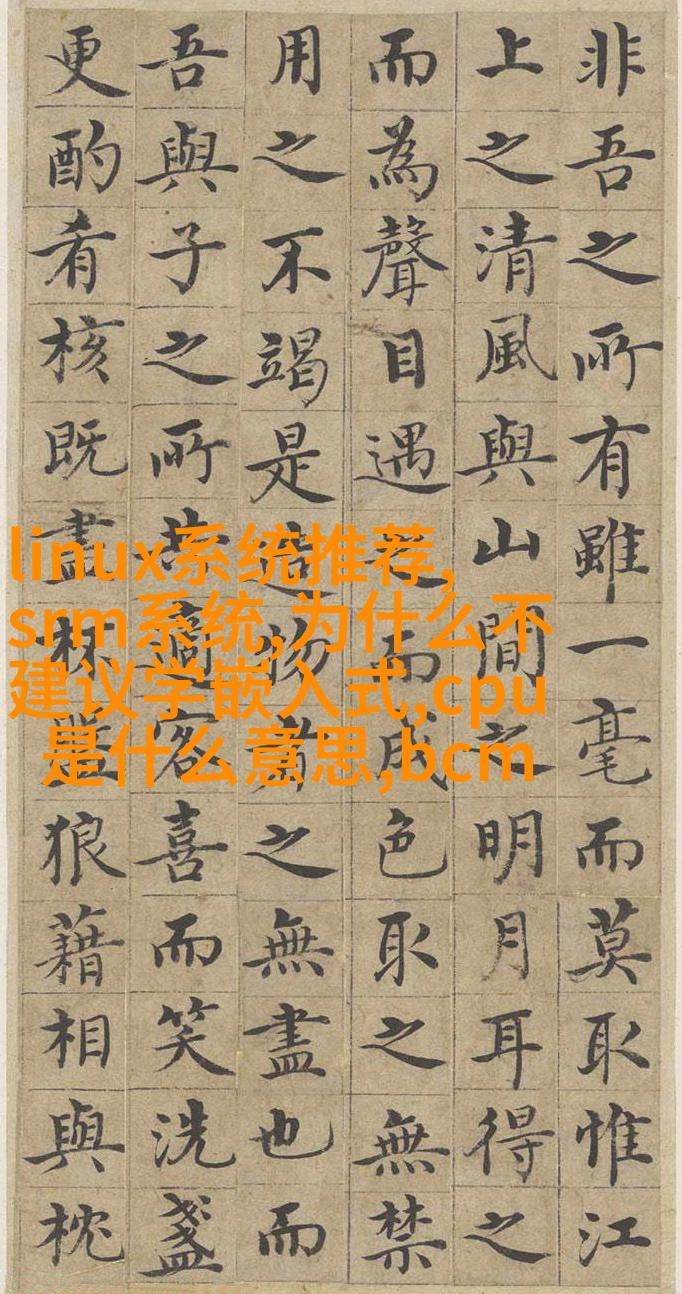 非吾之所有雖一毫而莫取惟江
上之清風與山間之明月耳得之
而為聲目遇之而成色取之無禁
用之不竭是造物者之無盡也而
吾與子之所共適客喜而笑洗盞
更酌肴核既盡杯盤狼藉相與枕
linux系统推荐,
srm系统,为什么不
建议学嵌入式,cpu
是什么意思,bcm